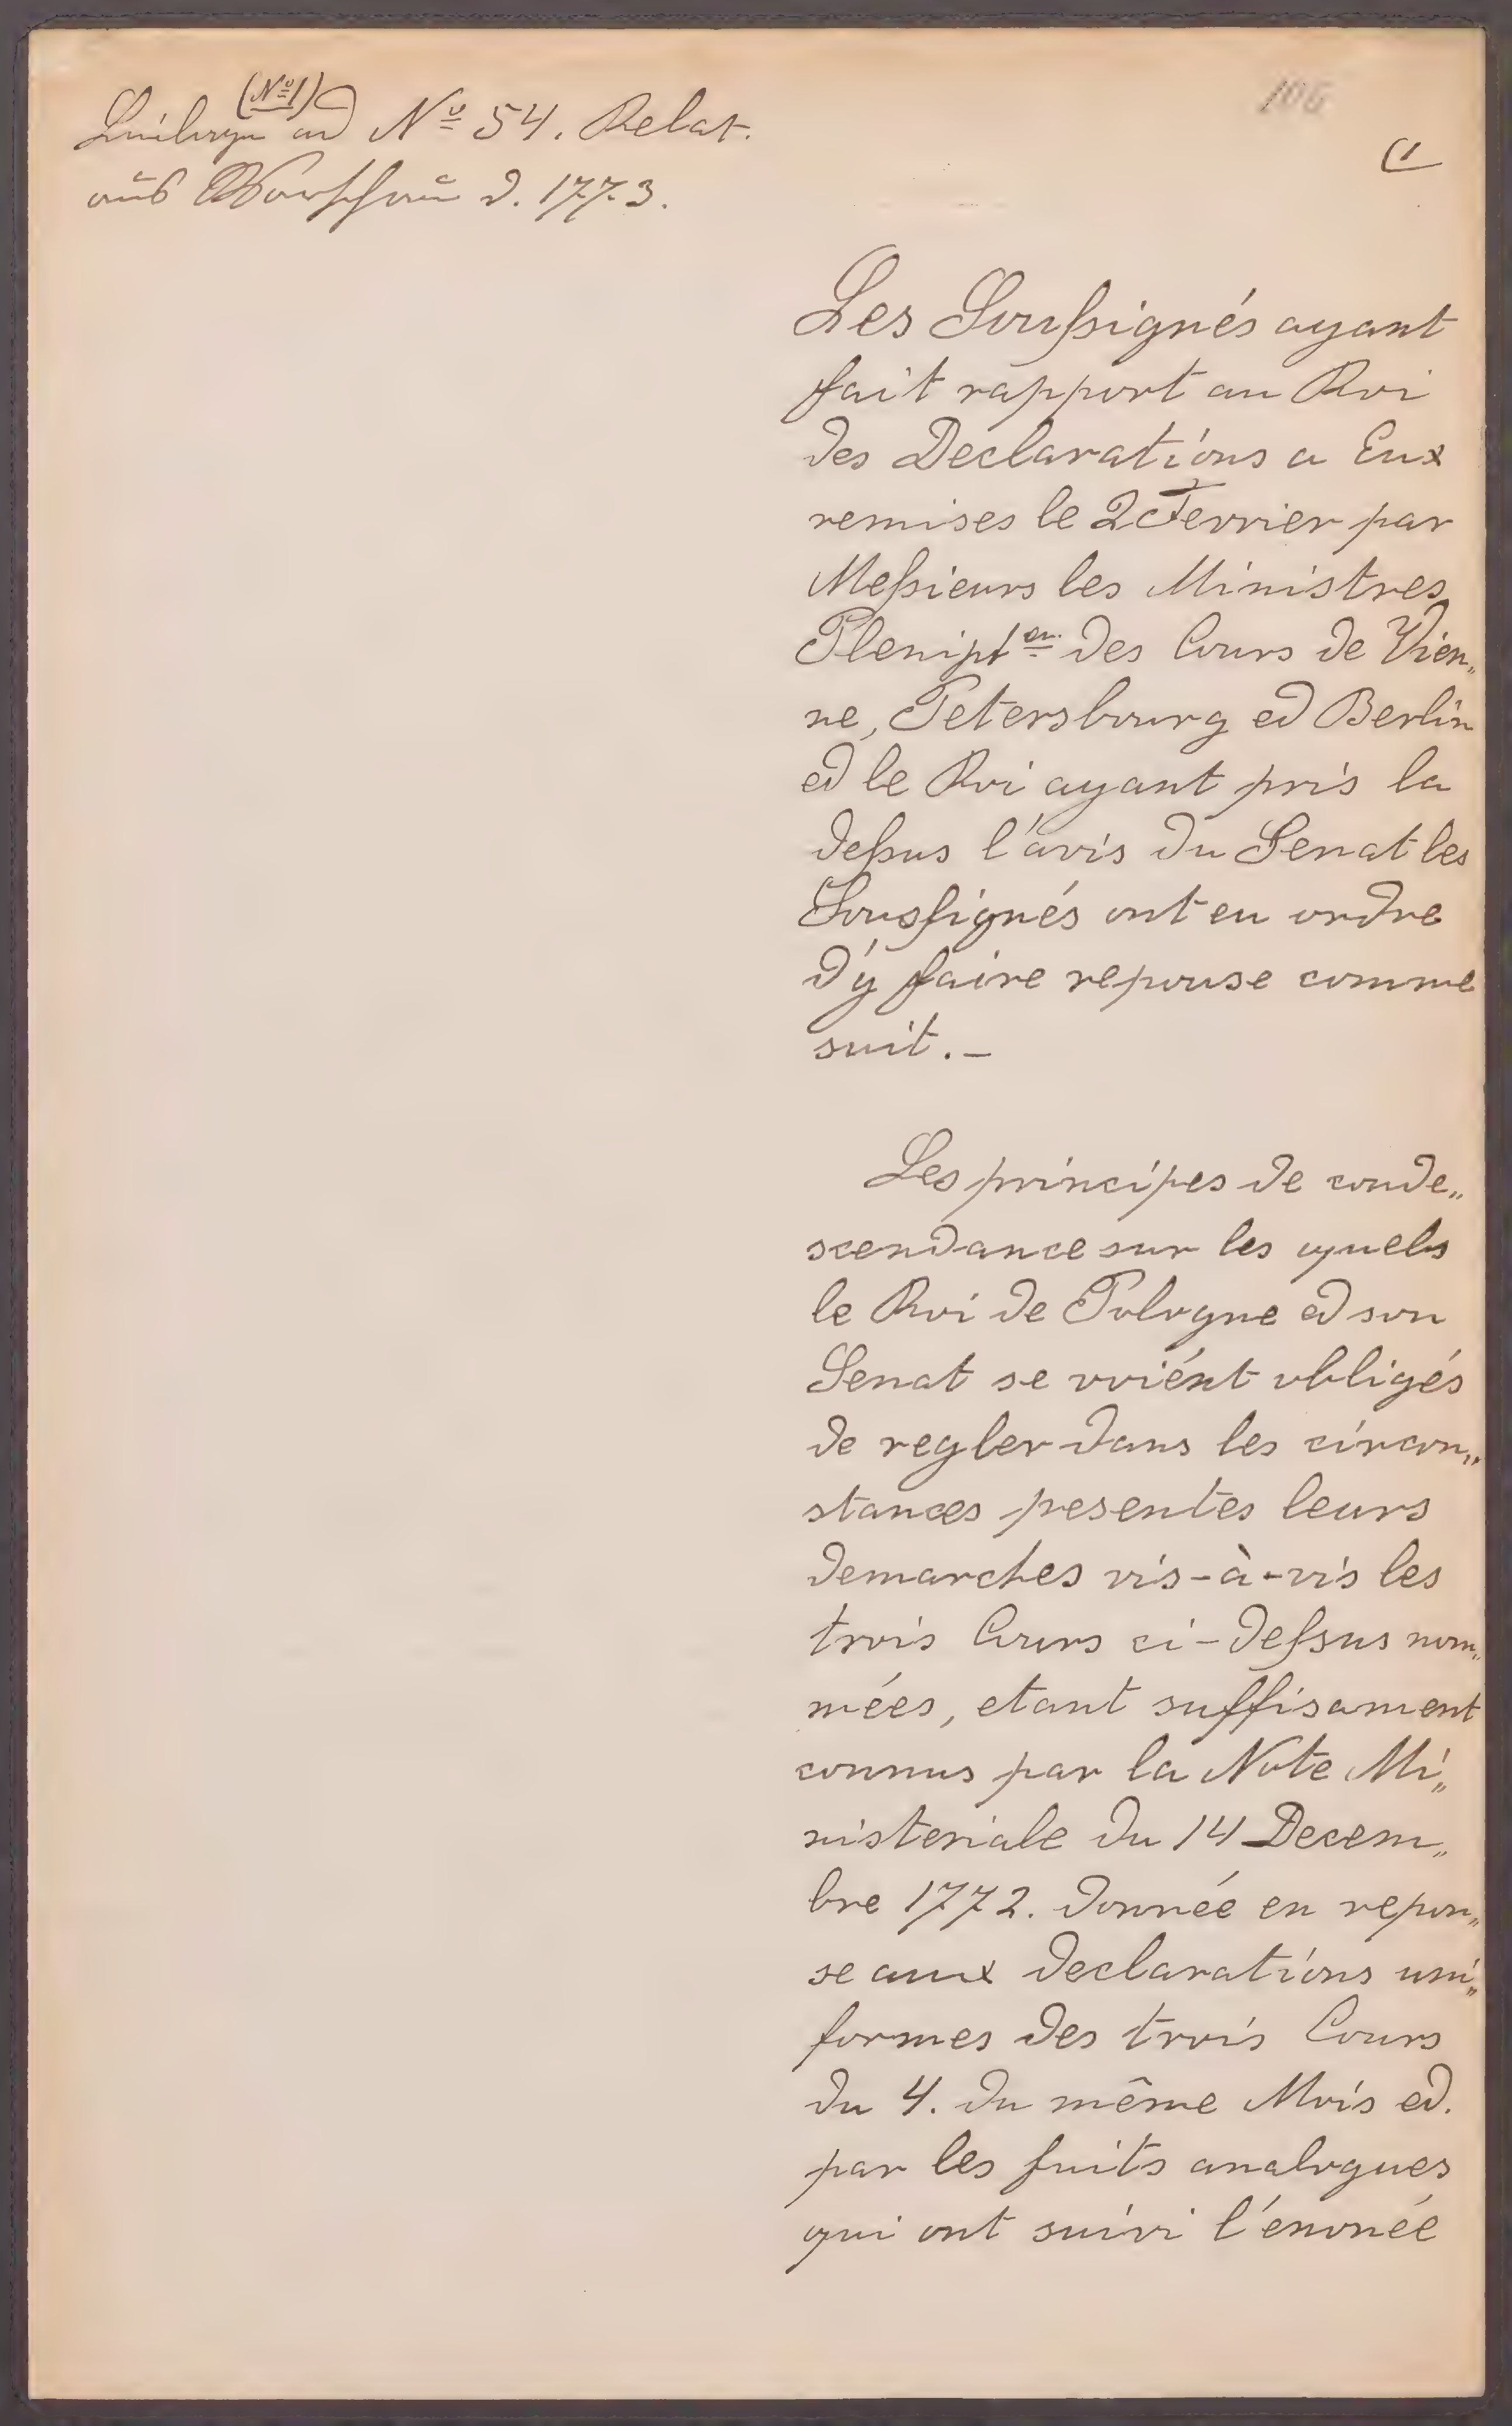 (No 1)
Beilage ad No 54. Relat.
aus Warschau d. 1773.
106
(1
Les Soussignés ayant
fait rapport au Roi
des Declarations a Eux
remises le 2 Fevrier par
Messieurs les Ministres
Plenipt en. des Cours de Vien„
ne, Petersbourg ed Berlin
ed le Roi ayant pris la
dessus l'avis du Senat les
Soussignés ont eu ordre
d'y faire reponse comme
suit. –
Les principes de conde„
scendance sur les quels
le Roi de Pologne ed son
Senat se voiént obligés
de regler dans les circon„
stances presentes leurs
demarches vis-à-vis les
trois Cours ci-dessus nom„
mées, etant suffisament
connus par la Note Mi„
nisteriale du 14 Decem„
bre 1772. donnée en repon„
se aux declarations uni„
formes des trois Cours
du 4. du même Mois ed.
par les faits analogues
qui ont suivi l'énoncé